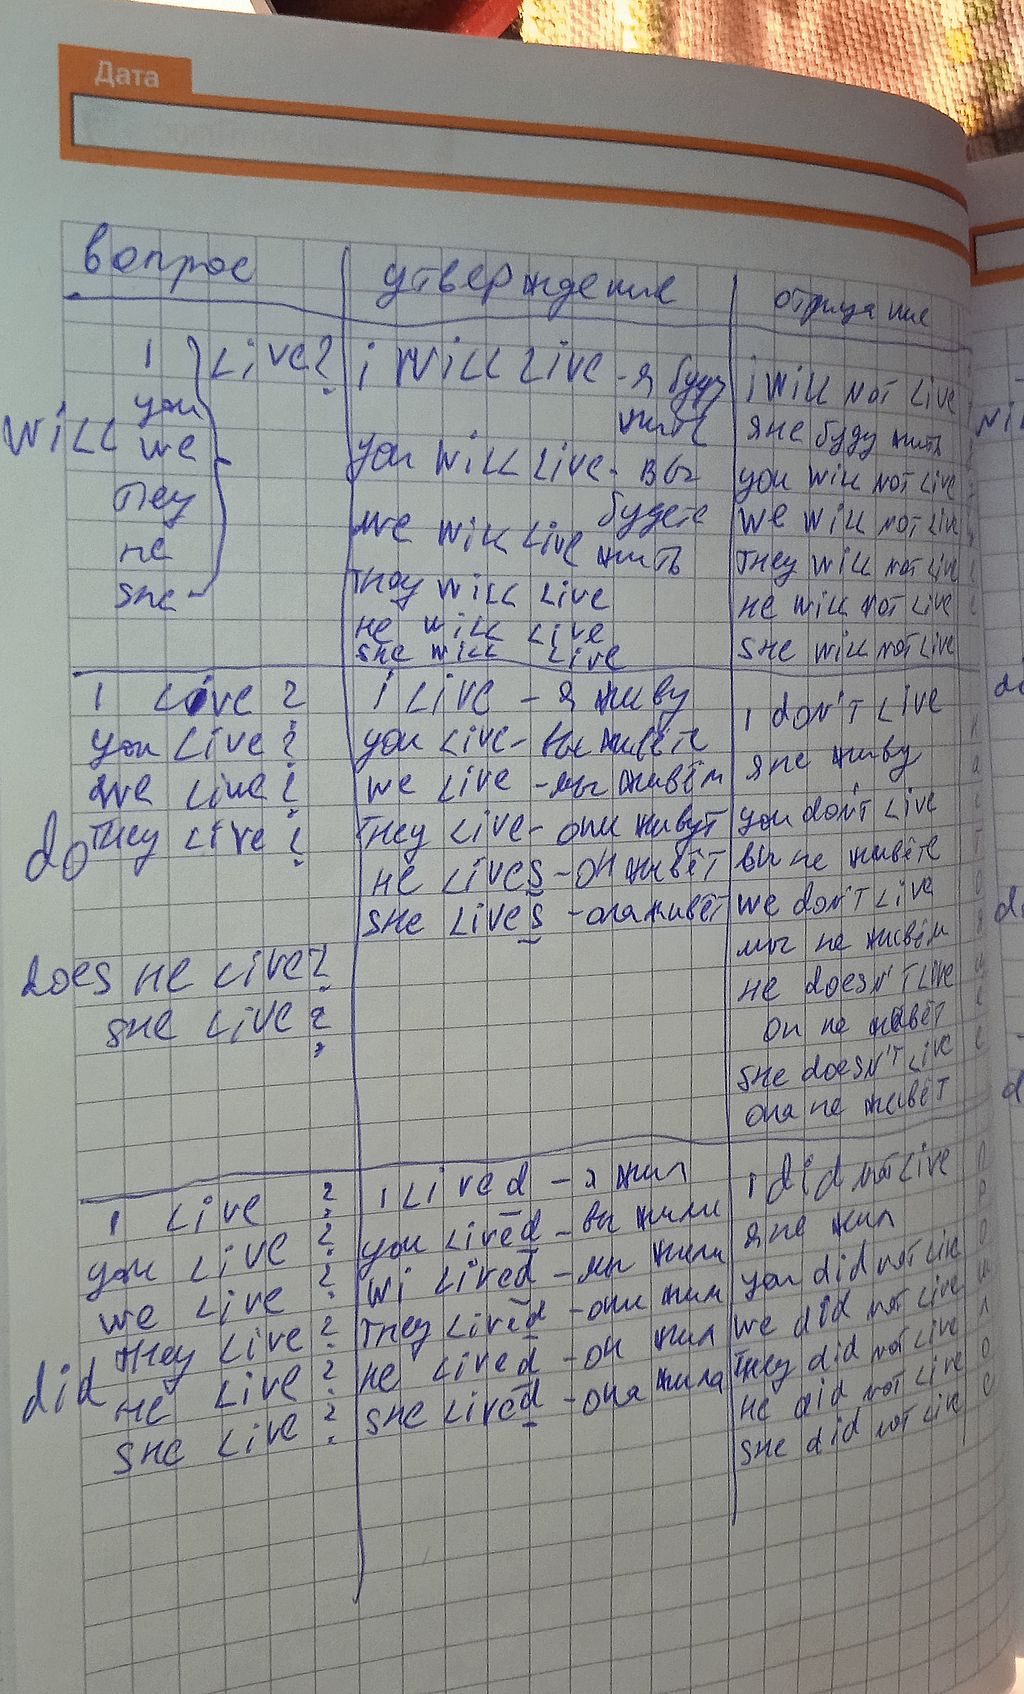 Дата
вопрос
утверждение
отрицание
Will
I
you
we
They
не
she
Live?
i Will Live - я буду
жить
you Will Live - вы
будете
we will Live жить
They Will Live
не will Live
she will Live
i will not Live
я не буду жить
you will not Live
we will not Live
They will not Live
не will not Live
she will not Live
I Live ?
you Live ?
we Live ?
do They Live ?
Does не Live?
she Live ?
i Live - я живу
you Live - вы живёте
we Live - мы живём
They Live - они живут
не Lives - он живёт
she Lives - она живёт
I don't Live
я не живу
you don't Live
вы не живёте
we don't Live
мы не живём
не doesn't Live
он не живёт
she doesn't Live
она не живёт
I Live ?
you Live ?
we Live ?
They Live ?
did не Live ?
she Live ?
i Lived - я жил
you Lived - вы жили
wi Lived - мы жили
They Lived - они жили
не Lived - он жил
she Lived - она жила
I did not Live
я не жил
you did not Live
we did not Live
They did not Live
не did not Live
she did not Live